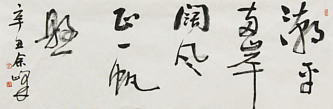 潮平
两岸
阔风
正一帆
悬
辛丑余峰书